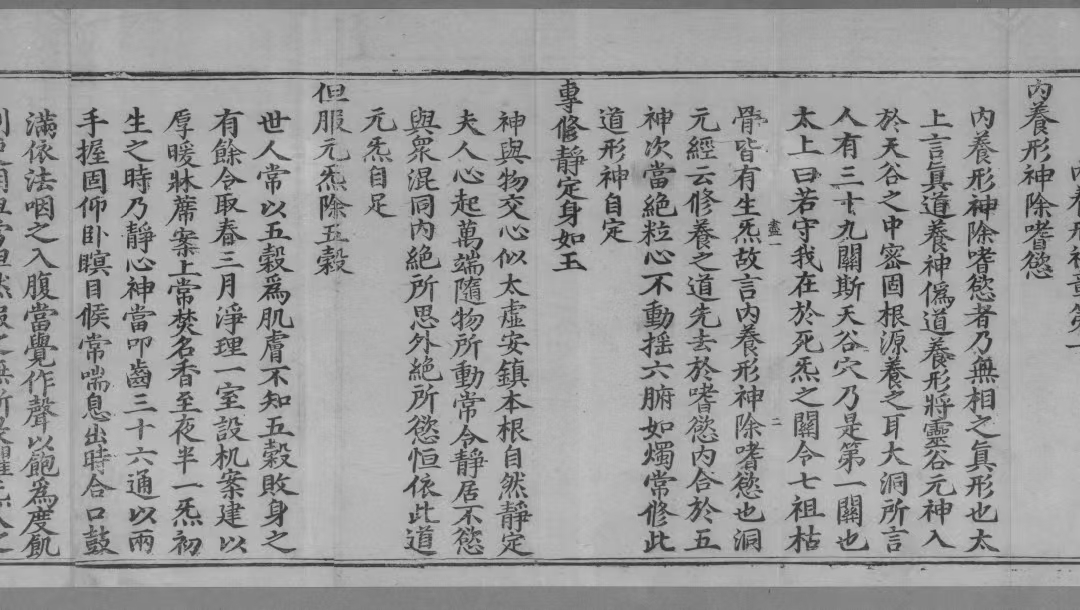 內養形神章第一
內養形神除嗜慾
內養形神除嗜慾者乃無相之真形也太
上言真道養神僞道養形將靈谷元神入
於天谷之中密固根源養之耳大洞所言
人有三十九關斯天谷穴乃是第一關也
太上曰若守我在於死炁之關令七祖枯
盡一 二
骨皆有生炁故言內養形神除嗜慾也洞
元經云修養之道先去於嗜慾內合於五
神次當絕粒心不動揺六腑如燭常修此
道形神自定
專修靜定身如玉
神與物交心似太虛安鎮本根自然靜定
夫人心起萬端隨物所動常令靜居不慾
與衆混同內絕所思外絕所慾恒依此道
元炁自足
但服元炁除五穀
世人常以五穀為肌膚不知五穀敗身之
有餘令取春三月淨理一室設机案建以
厚暖牀蓆案上常焚名香至夜半一炁初
生之時乃靜心神當叩齒三十六通以兩
手握固仰卧瞑目候常喘息出時合口鼓
滿依法咽之入腹當覺作聲以飽為度飢